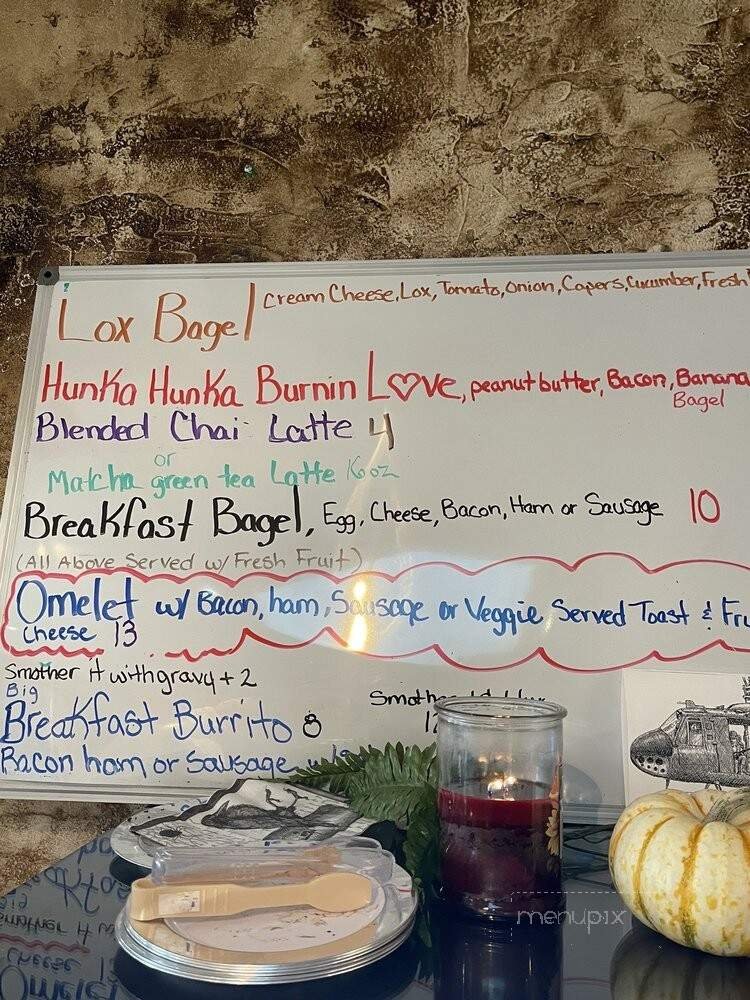 Lox Bagel Cream Cheese, Lox, Tomato, Onion, Capers, Cucumber, Fresh
Hunka Hunka Burnin L♡ve, peanut butter, Bacon, Banana
Bagel
Blended Chai Latte 4
or
Matcha green tea Latte 16oz
Breakfast Bagel, Egg, Cheese, Bacon, Ham or Sausage 10
(All Above Served w/ Fresh Fruit)
Omelet w/ Bacon, ham, Sausage or Veggie Served Toast & Fru
Cheese 13
Smother it with gravy + 2
Big
Breakfast Burrito 8
Bacon ham or Sausage
menupix